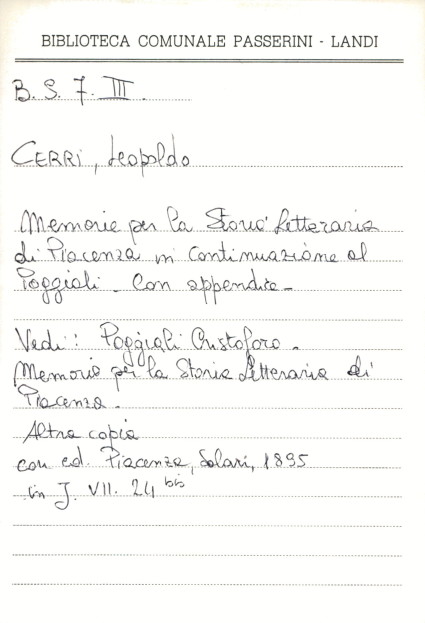 BIBLIOTECA COMUNALE PASSERINI - LANDI
B. S. 7. III.
CERRI, Leopoldo
Memorie per la Storia Letteraria
di Piacenza in continuazione al
Poggiali - Con appendice -
Vedi: Poggiali Cristoforo -
Memorie per la Storia Letteraria di
Piacenza -
Altra copia
con ed. Piacenza, Solari, 1895
in J. VII. 24 bis